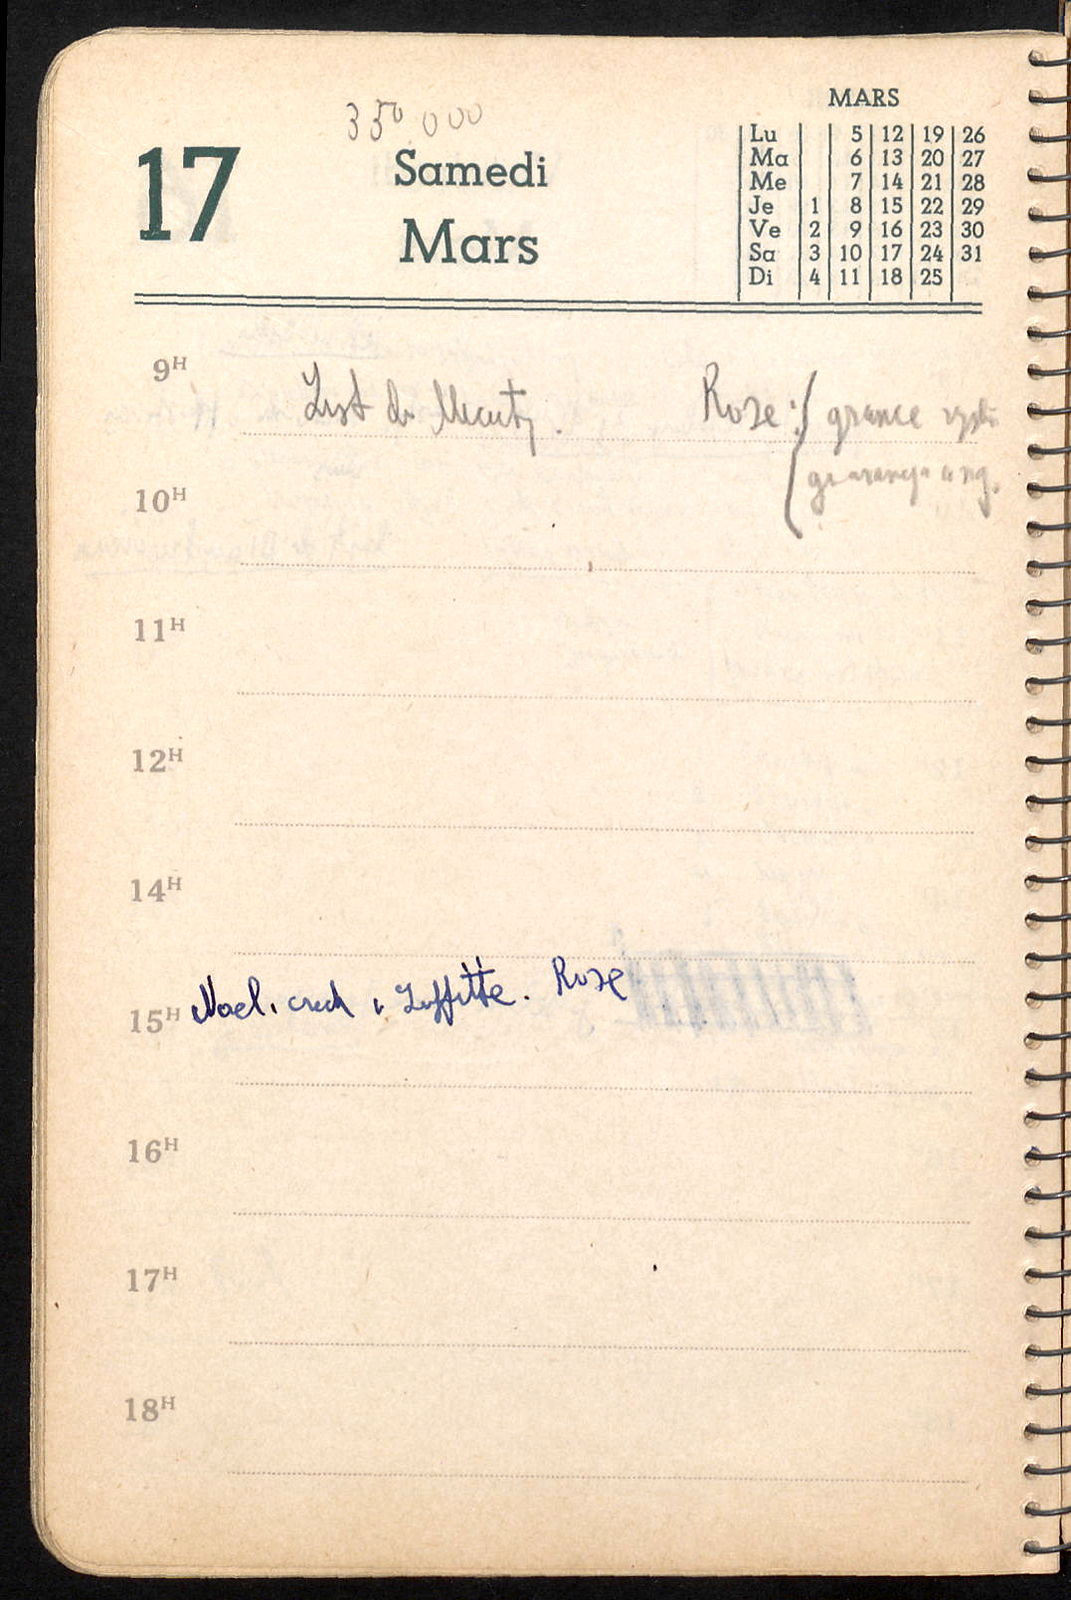 350 000
17
Samedi
Mars
MARS
Lu 5 12 19 26
Ma 6 13 20 27
Me 7 14 21 28
Je 1 8 15 22 29
Ve 2 9 16 23 30
Sa 3 10 17 24 31
Di 4 11 18 25
9H
List do Rose:
10H
11H
12H
14H
15H Noel. Laffitte. Rose
16H
17H
18H